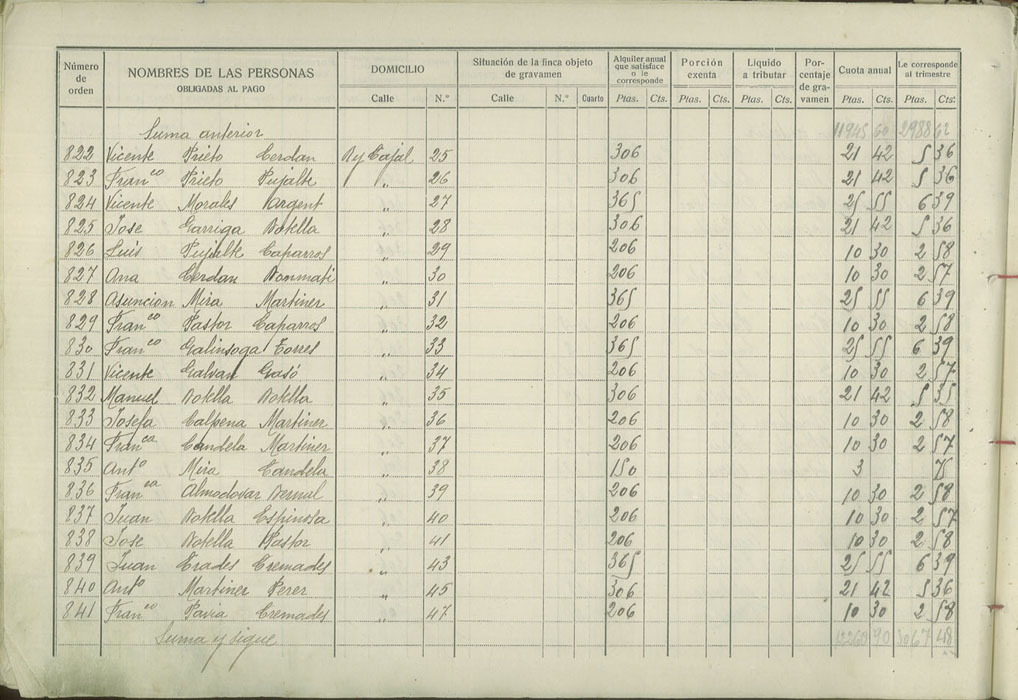 Número de orden | NOMBRES DE LAS PERSONAS OBLIGADAS AL PAGO | DOMICILIO | Situación de la finca objeto de gravamen | Alquiler anual que satisface o le corresponde | Porción exenta | Líquido a tributar | Por- centaje de gra- vamen | Cuota anual | Le corresponde al trimestre
Calle | N.º | Calle | N.º | Cuarto | Ptas. | Cts. | Ptas. | Cts. | Ptas. | Cts. | Ptas. | Cts. | Ptas. | Cts.
Suma anterior 11945 60 2988 62
822 Vicente Prieto Cerdan R y Cajal 25 306 21 42 5 36
823 Franco Prieto Pujalte " 26 306 21 42 5 36
824 Vicente Morales Argent " 27 365 25 55 6 39
825 Jose Garriga Botella " 28 306 21 42 5 36
826 Luis Pujalte Caparros " 29 206 10 30 2 58
827 Ana Cerdan Bonmati " 30 206 10 30 2 57
828 Asuncion Mira Martinez " 31 365 25 55 6 39
829 Franco Pastor Caparros " 32 206 10 30 2 58
830 Franco Galinsoga Torres " 33 365 25 55 6 39
831 Vicente Galvan Gasó " 34 206 10 30 2 57
832 Manuel Botella Botella " 35 306 21 42 5 35
833 Josefa Calpena Martinez " 36 206 10 30 2 58
834 Franca Candela Martinez " 37 206 10 30 2 57
835 Anto Mira Candela " 38 150 3 75
836 Franca Almodovar Bernal " 39 206 10 30 2 58
837 Juan Botella Espinosa " 40 206 10 30 2 57
838 Jose Botella Pastor " 41 206 10 30 2 58
839 Juan Prades Cremades " 43 365 25 55 6 39
840 Anto Martinez Perez " 45 306 21 42 5 36
841 Franco Pavia Cremades " 47 206 10 30 2 58
Suma y sigue 12260 90 3067 48